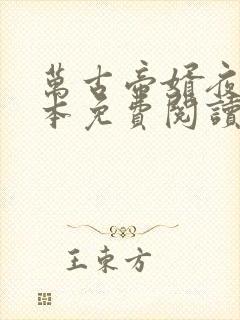 萬古帝婿夜
本免費閱讀
王東方